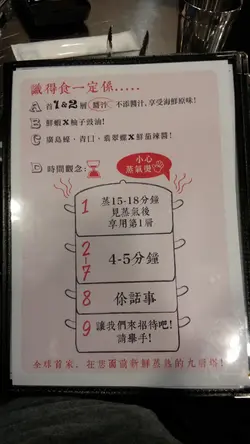 識得食一定係.....
A 首1&2層(醬汁)不添醬汁,享受海鮮原味!
B 鮮蝦X柚子豉油!
C 廣島蠔、青口、翡翠螺X鮮茄辣醬!
D 時間觀念:
小心
蒸氣燙
1 蒸15-18分鐘
見蒸氣後
享用第1層
2-7 4-5分鐘
8 你話事
9 讓我們來招待吧!
請舉手!
全球首家,在您面前新鮮蒸熟的九層塔!